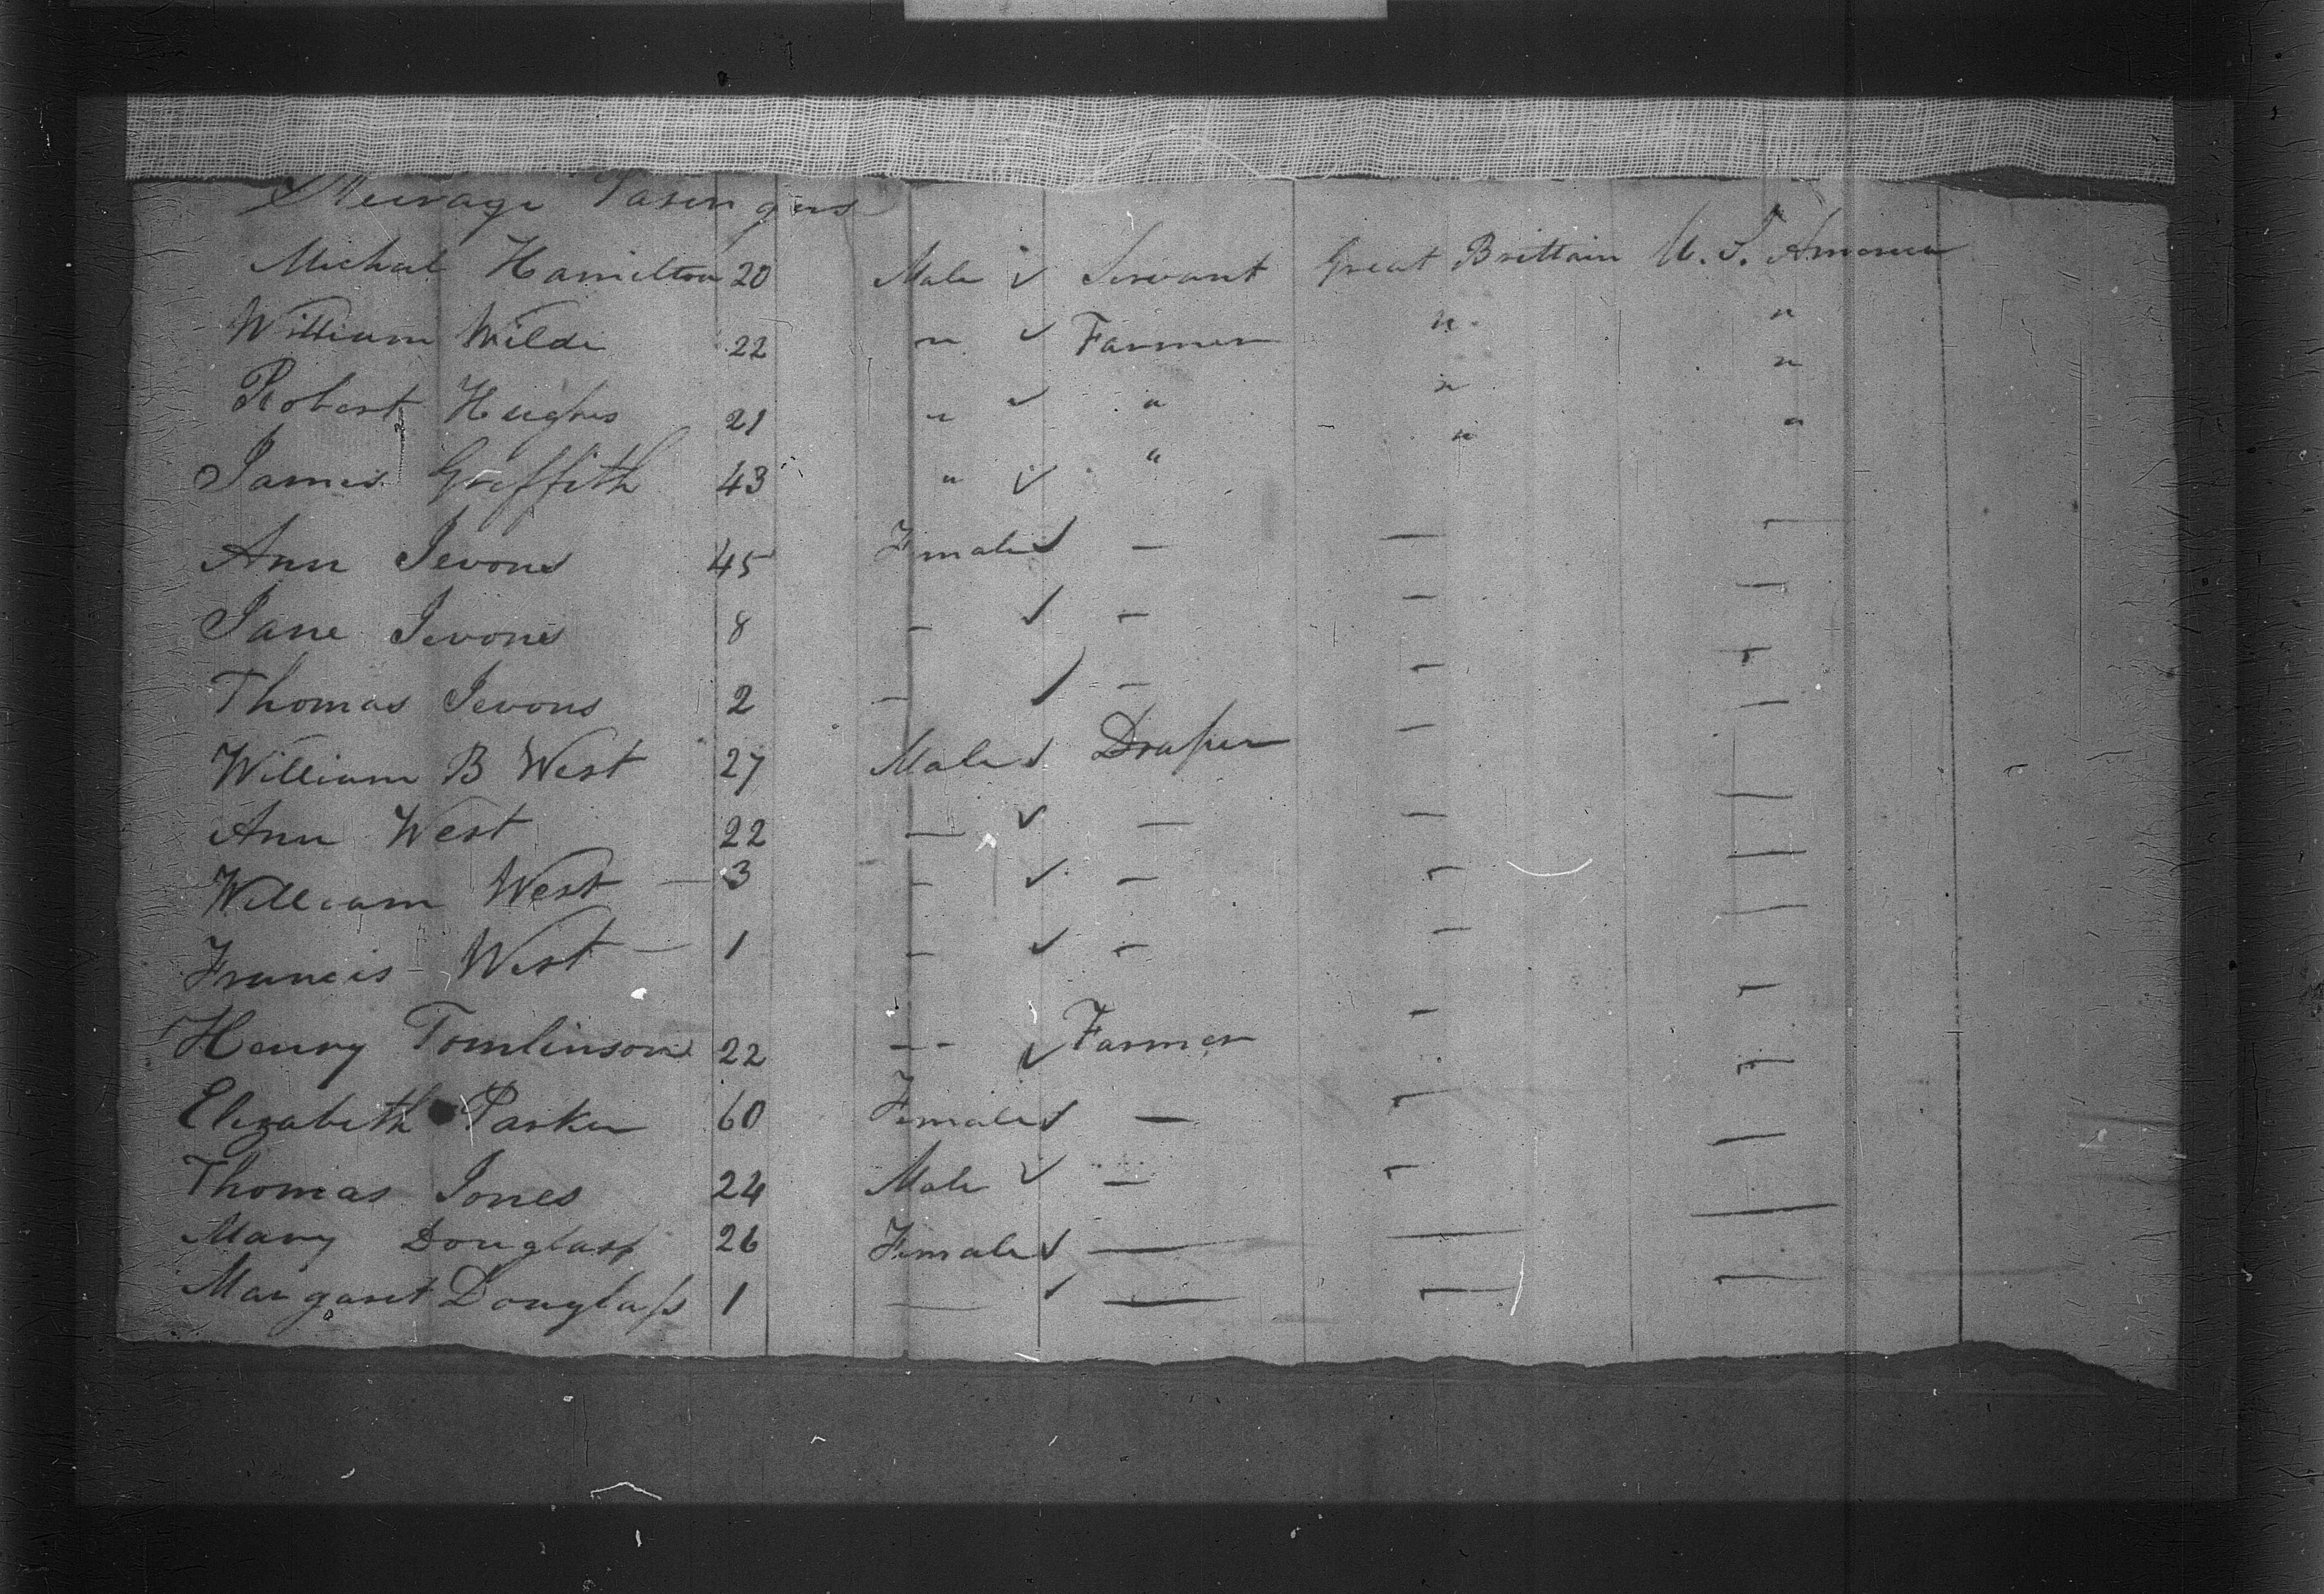 Steerage Pasengers
Michal Hamilton 20 Male ✓ Servant Great Brittain U. S. America
William Wilde 22 " ✓ Farmer " "
Robert Hughes 21 " ✓ " " "
James Griffith 43 " ✓ " " "
Ann Jevons 45 Female ✓ — — —
Jane Jevons 8 — ✓ — — —
Thomas Jevons 2 — ✓ — — —
William B West 27 Male ✓ Draper — —
Ann West 22 — ✓ — — —
William West — 3 — ✓ — — —
Francis West — 1 — ✓ — — —
Henry Tomlinson 22 -- ✓ Farmer — —
Elizabeth Parker 60 Female ✓ — — —
Thomas Jones 24 Male ✓ — — —
Mary Douglass 26 Female ✓ — — —
Margaret Douglass 1 — ✓ — — —